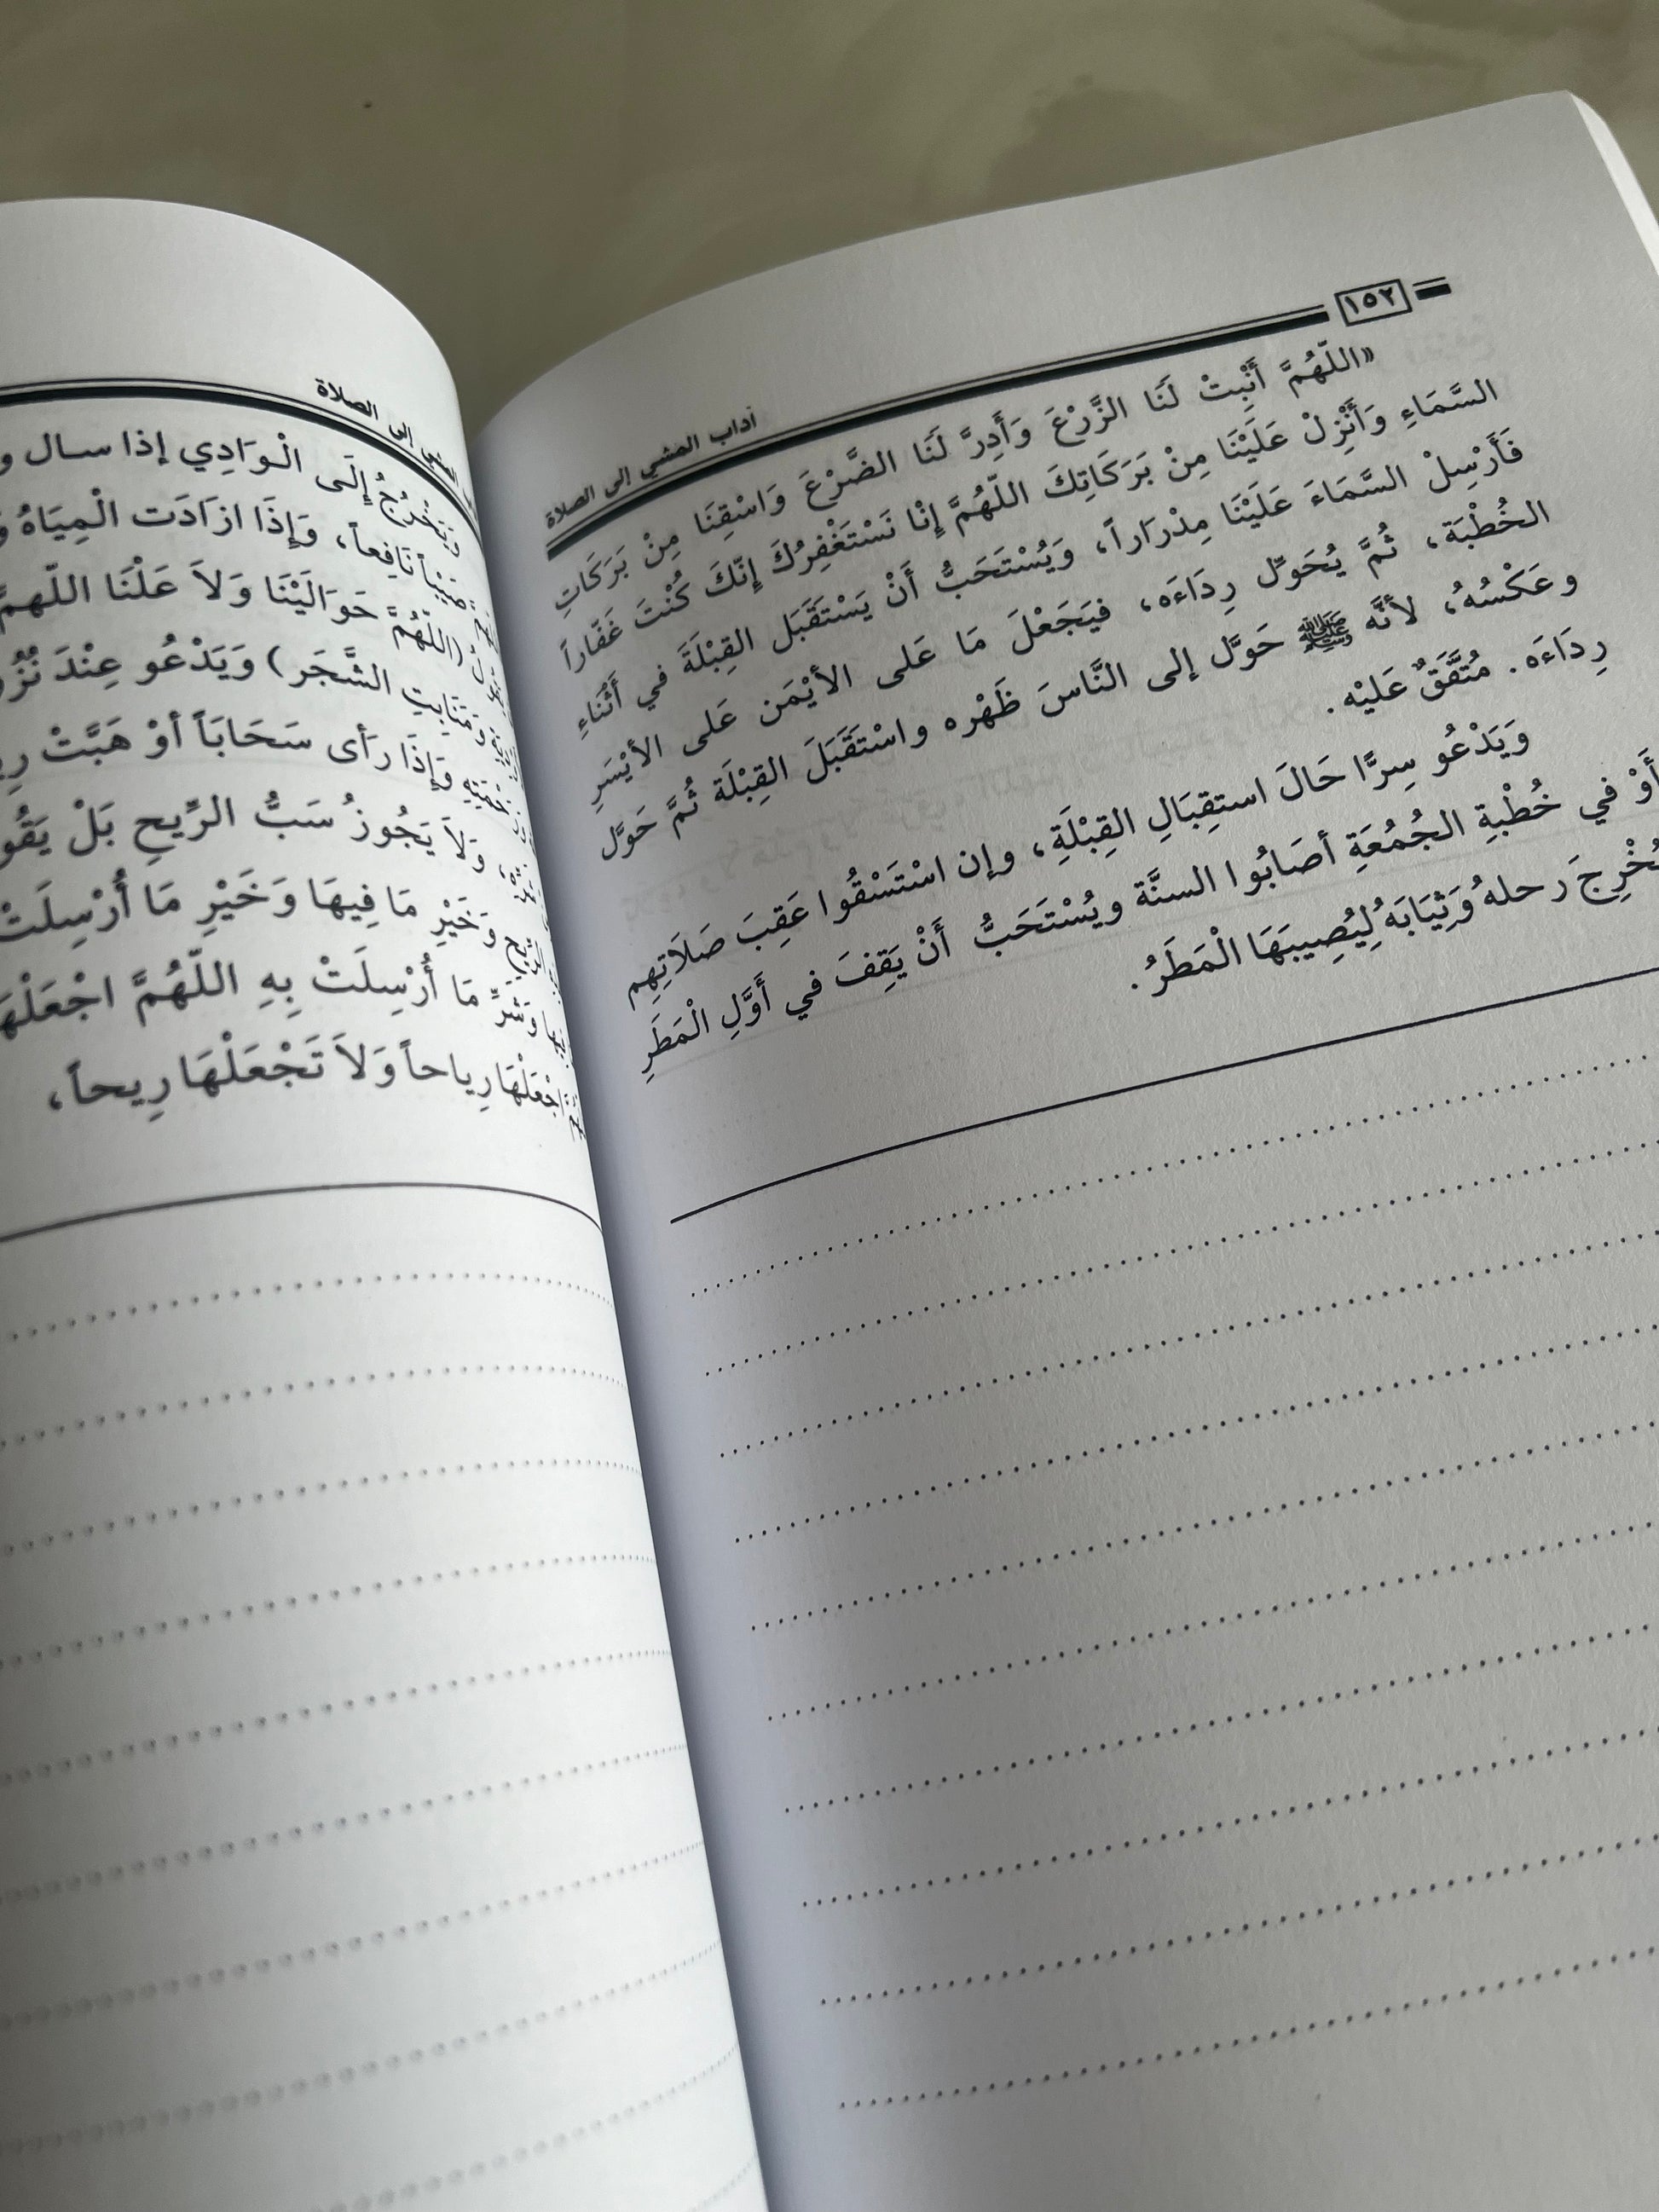 ١٥٢
آداب المشي إلى الصلاة
«اللّهُمَّ أَنْبِتْ لَنَا الزَّرْعَ وَأَدِرَّ لَنَا الضَّرْعَ وَاسْقِنَا مِنْ بَرَكَاتِ
السَّمَاءِ وَأَنْزِلْ عَلَيْنَا مِنْ بَرَكَاتِكَ اللّهُمَّ إِنْا نَسْتَغْفِرُكَ إِنّكَ كُنْتَ غَفّاراً
فَأَرْسِلْ السَّمَاءَ عَلَيْنَا مِدْرَاراً، وَيُسْتَحَبُّ أَنْ يَسْتَقَبَل القِبْلَةَ في أَثْنَاءِ
الخُطْبَة، ثُمَّ يُحَوّل رِدَاءَه، فيَجَعْلَ مَا عَلى الأيْمَن عَلى الأيْسَرِ
وعَكْسُهُ، لأنَّه ﷺ حَوَّل إلى النَّاسَ ظَهْره واسْتَقَبَلَ القِبْلَة ثُمَّ حَوَّل
رِدَاءَه. مُتَّفَقٌ عَليْه.
وَيَدْعُو سِرًّا حَالَ استقِبَالِ القِبْلَةِ، وإن اسْتَسْقُوا عَقِبَ صَلَاتِهِم
أَوْ في خُطْبةِ الجُمُعَةِ أصَابُوا السنَّة ويُسْتَحَبُّ أَنْ يَقِفَ في أَوَّلِ الْمَطَرِ
رحلهُ وَثِيَابَهُ لِيُصِيبَهَا الْمَطَرُ.
إلى الصلاة
وَيَخْرُجُ إِلَى الْوَادِي إذا سال
صَيِّباً نَافِعاً، وَإِذَا ازَادَت الْمِيَاهُ
(اللّهُمَّ حَوَالَيْنَا وَلاَ عَلْنَا اللّهمَّ
وَمَنَابِتِ الشَّجَر) وَيَدْعُو عِنْدَ
وَإِذَا رَأى سَحَابَاً أوْ هَبَّتْ
وَلاَ يَجُوزُ سَبُّ الرِّيحِ بَلْ
وَخَيْرِ مَا فِيهَا وَخَيْرِ مَا أُرْسِلَتْ
وَشَرِّ مَا أُرْسِلَتْ بِهِ اللّهُمَّ اجْعَلْهَا
اجْعَلْهَا رِياحاً وَلاَ تَجْعَلْهَا رِيحاً،